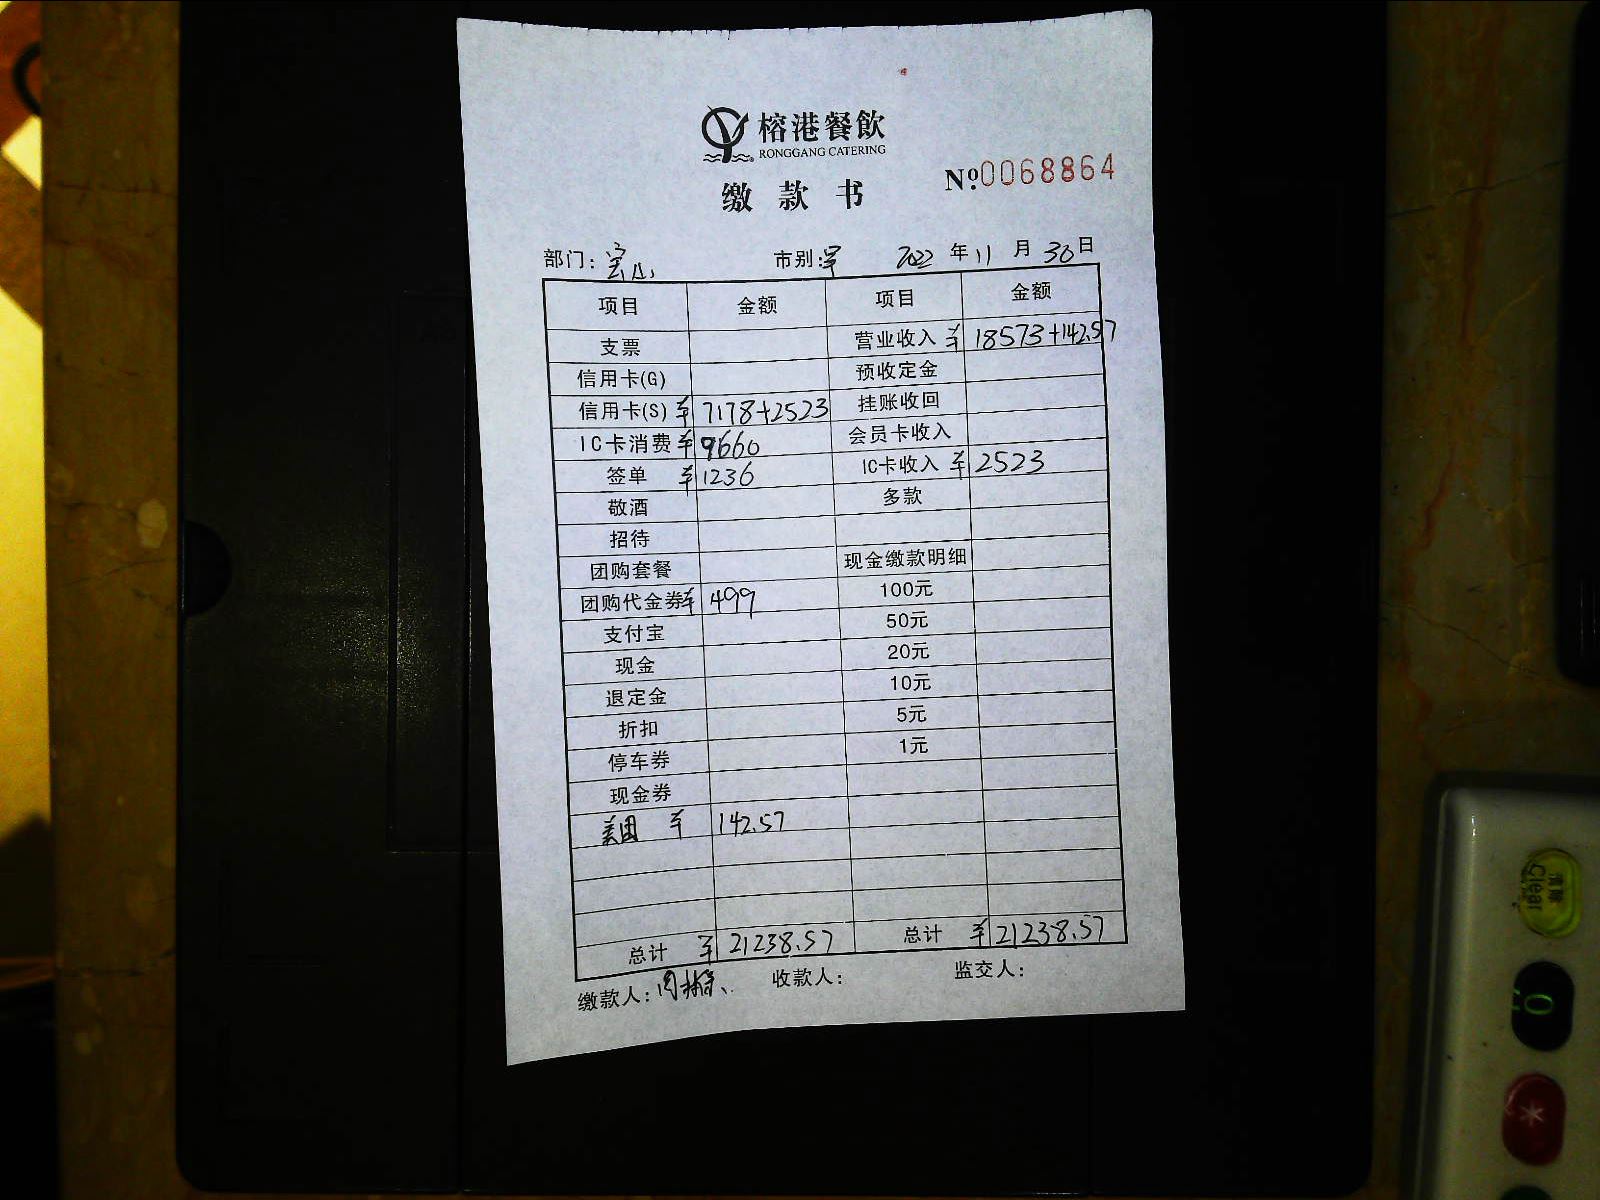 榕港餐飲
RONGGANG CATERING
缴款书 Nº0068864
部门: 宝山 市别: 2022 年 11 月 30 日
项目 金额 项目 金额
支票 营业收入 ¥ 18573+142.57
信用卡(G) 预收定金
信用卡(S) ¥ 7178+2523 挂账收回
IC卡消费 ¥ 9660 会员卡收入
签单 ¥ 1236 IC卡收入 ¥ 2523
敬酒 多款
招待
团购套餐 现金缴款明细
团购代金券 ¥ 499 100元
支付宝 50元
现金 20元
退定金 10元
折扣 5元
停车券 1元
现金券
美团 ¥ 142.57
总计 ¥ 21238.57 总计 ¥ 21238.57
缴款人: 收款人: 监交人:
清除
Clear
0
*